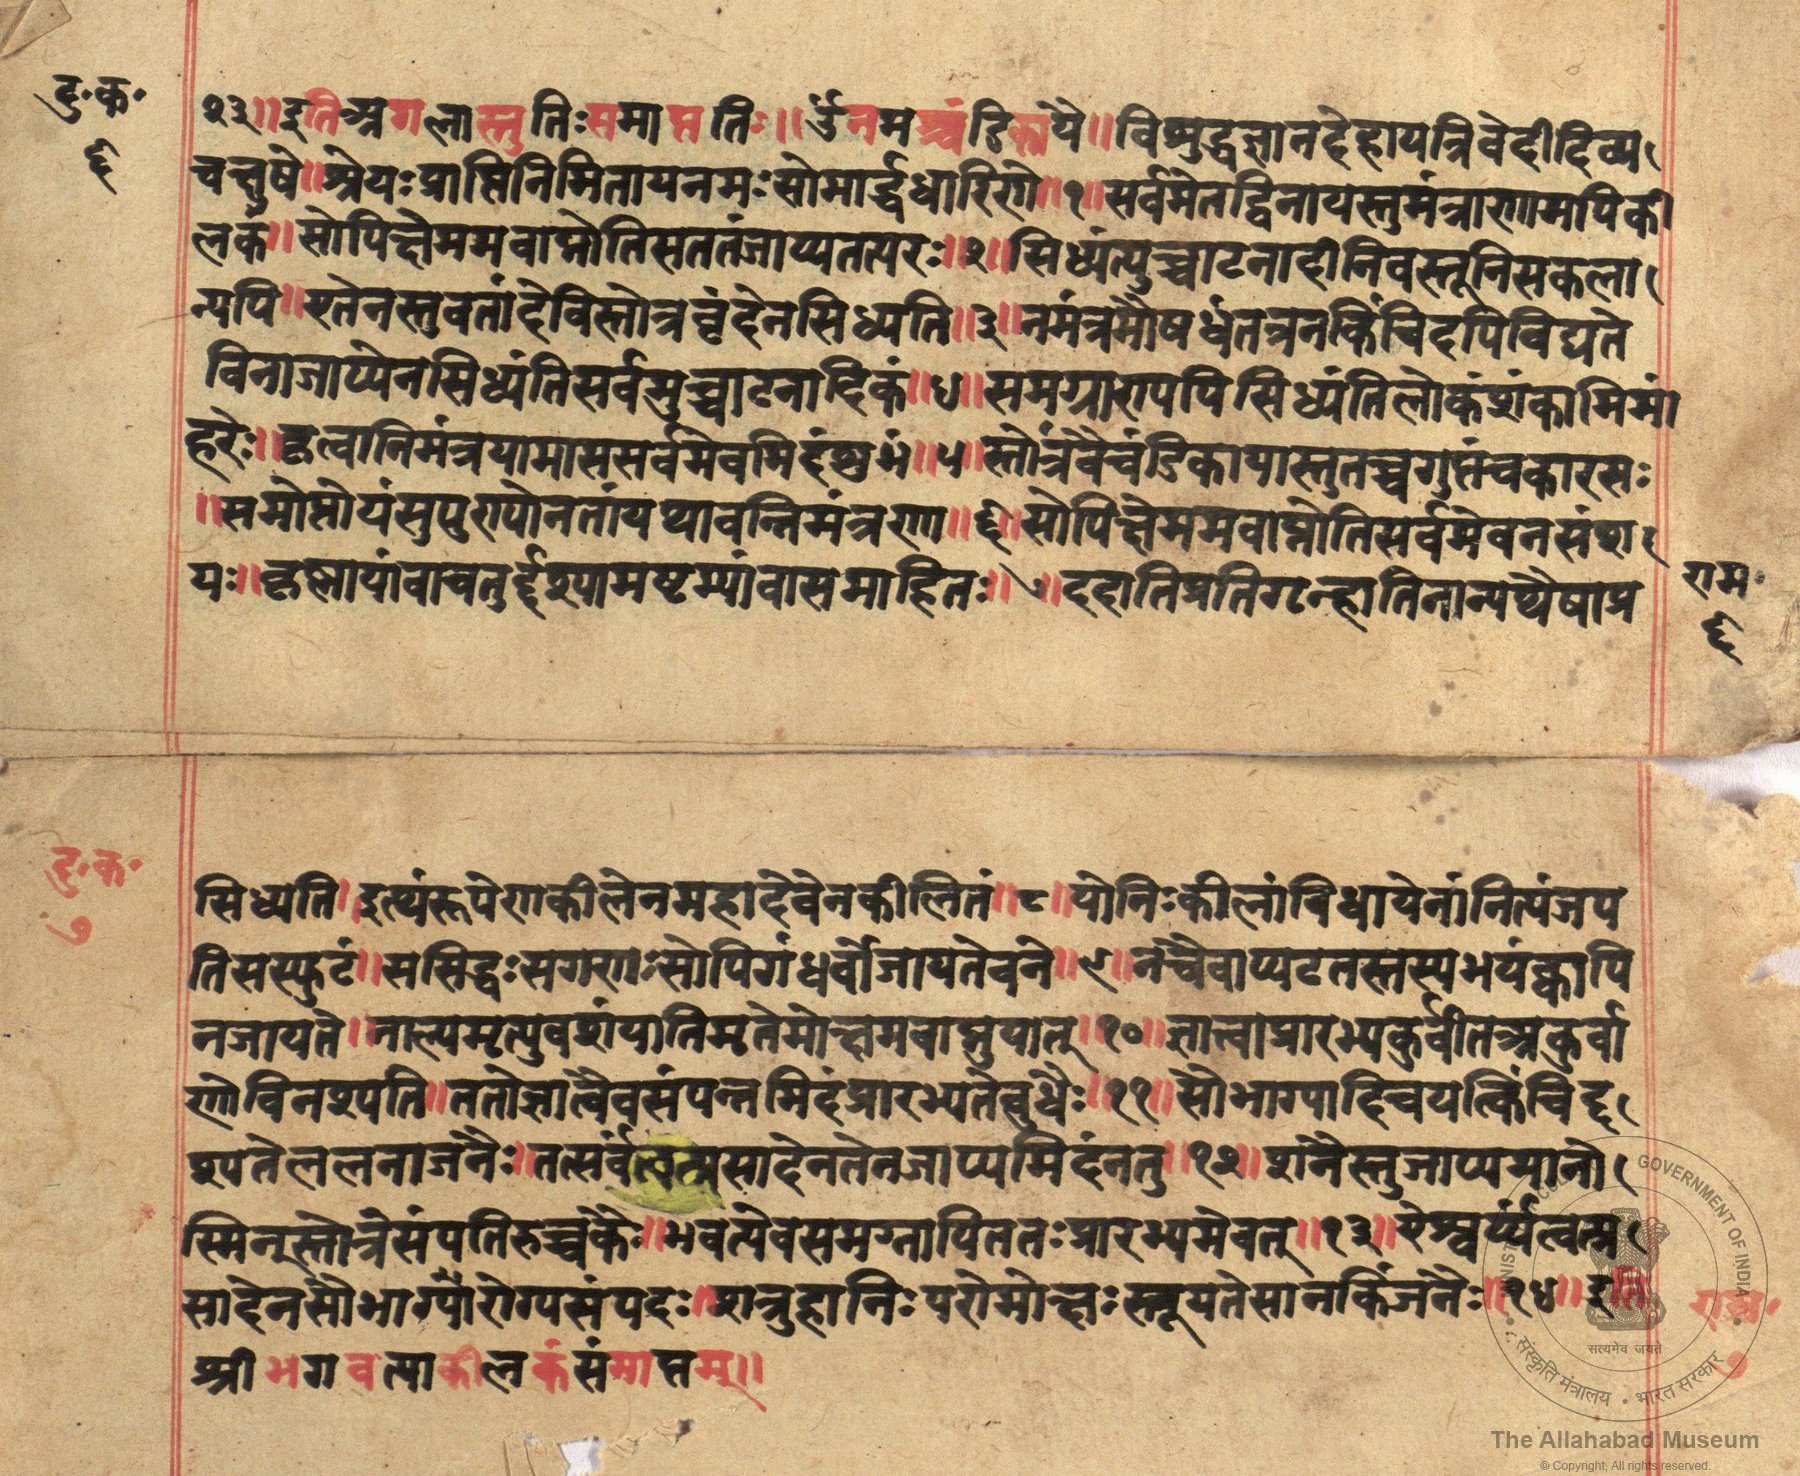 दु॰क॰
६
२३॥ इति अर्गलास्तुतिः समाप्तिः॥ ॐ नमश्चंडिकायै॥ विशुद्धज्ञानदेहायत्रिवेदीदिव्य
चक्षुषे॥ श्रेयःप्राप्तिनिमितायनमःसोमार्द्धधारिणे॥१॥ सर्वमेतद्विनायस्तुमंत्राणामपिकी
लकं॥ सोपिक्षेममवाप्नोतिसततंजाप्यतत्परः॥२॥ सिध्यंत्युच्चाटनादीनिवस्तूनिसकला
न्यपि॥ एतेनस्तुवतांदेविस्तोत्रवृंदेनसिध्यति॥३॥ नमंत्रमौषधंतत्रनकिंचिदपिविद्यते
विनाजाप्येनसिध्यंतिसर्वमुच्चाटनादिकं॥४॥ समग्राण्यपिसिध्यंतिलोकंशंकामिमां
हरेः॥ कृत्वानिमंत्रयामाससर्वमेवमिदंशुभं॥५॥ स्तोत्रंवैचंडिकायास्तुतच्चगुप्तंचकारसः
॥ समोप्तोयंसुपुण्योनतांयथावन्निमंत्रणा॥६॥ सोपिक्षेममवाप्नोतिसर्वमेवनसंश
यः॥ कृष्णायांवाचतुर्द्दश्यामष्टम्यांवासमाहितः॥७॥ ददातिप्रतिगृन्हातिनान्यथैषाप्र
राम॰
६
दु॰क॰
७
सिध्यति॥ इत्थंरूपेणकीलेनमहादेवेनकीलितं॥८॥ योनिःकीलांविधायेनांनित्यंजप
तिसस्फुटं॥ ससिद्धःसगणःसोपिगंधर्वोजायतेवने॥९॥ नचैवाप्यटतस्तस्यभयंक्वापि
नजायते॥ नाल्पमृत्युवशंयातिमृतेमोक्षमवाप्नुयात्॥१०॥ ज्ञात्वाप्रारभ्यकुर्वीतअकुर्वा
णोविनश्यति॥ ततोज्ञात्वैवसंपन्नमिदंप्रारभ्यतेबुधैः॥११॥ सौभाग्यादिचयत्किंचिद्दृ
श्यतेललनाजनैः॥ तत्सर्वंत्वत्प्रसादेनतेनजाप्यमिदंनतु॥१२॥ शनैस्तुजाप्यमानो
स्मिन्स्तोत्रेसंपतिरुच्चकैः॥ भवत्येवसमग्नापिततःप्रारभ्यमेवतत्॥१३॥ ऐश्वर्य्यंत्वत्प्र
सादेनसौभाग्यारोग्यसंपदः॥ शत्रुहानिःपरोमोक्षःस्तूयतेसानकिंजनैः॥१४॥ इति
श्रीभगवत्याकीलकंसंमाप्तम्॥
राम॰
७
GOVERNMENT OF INDIA
सत्यमेव जयते
संस्कृति मंत्रालय • भारत सरकार
The Allahabad Museum
© Copyright, All rights reserved.